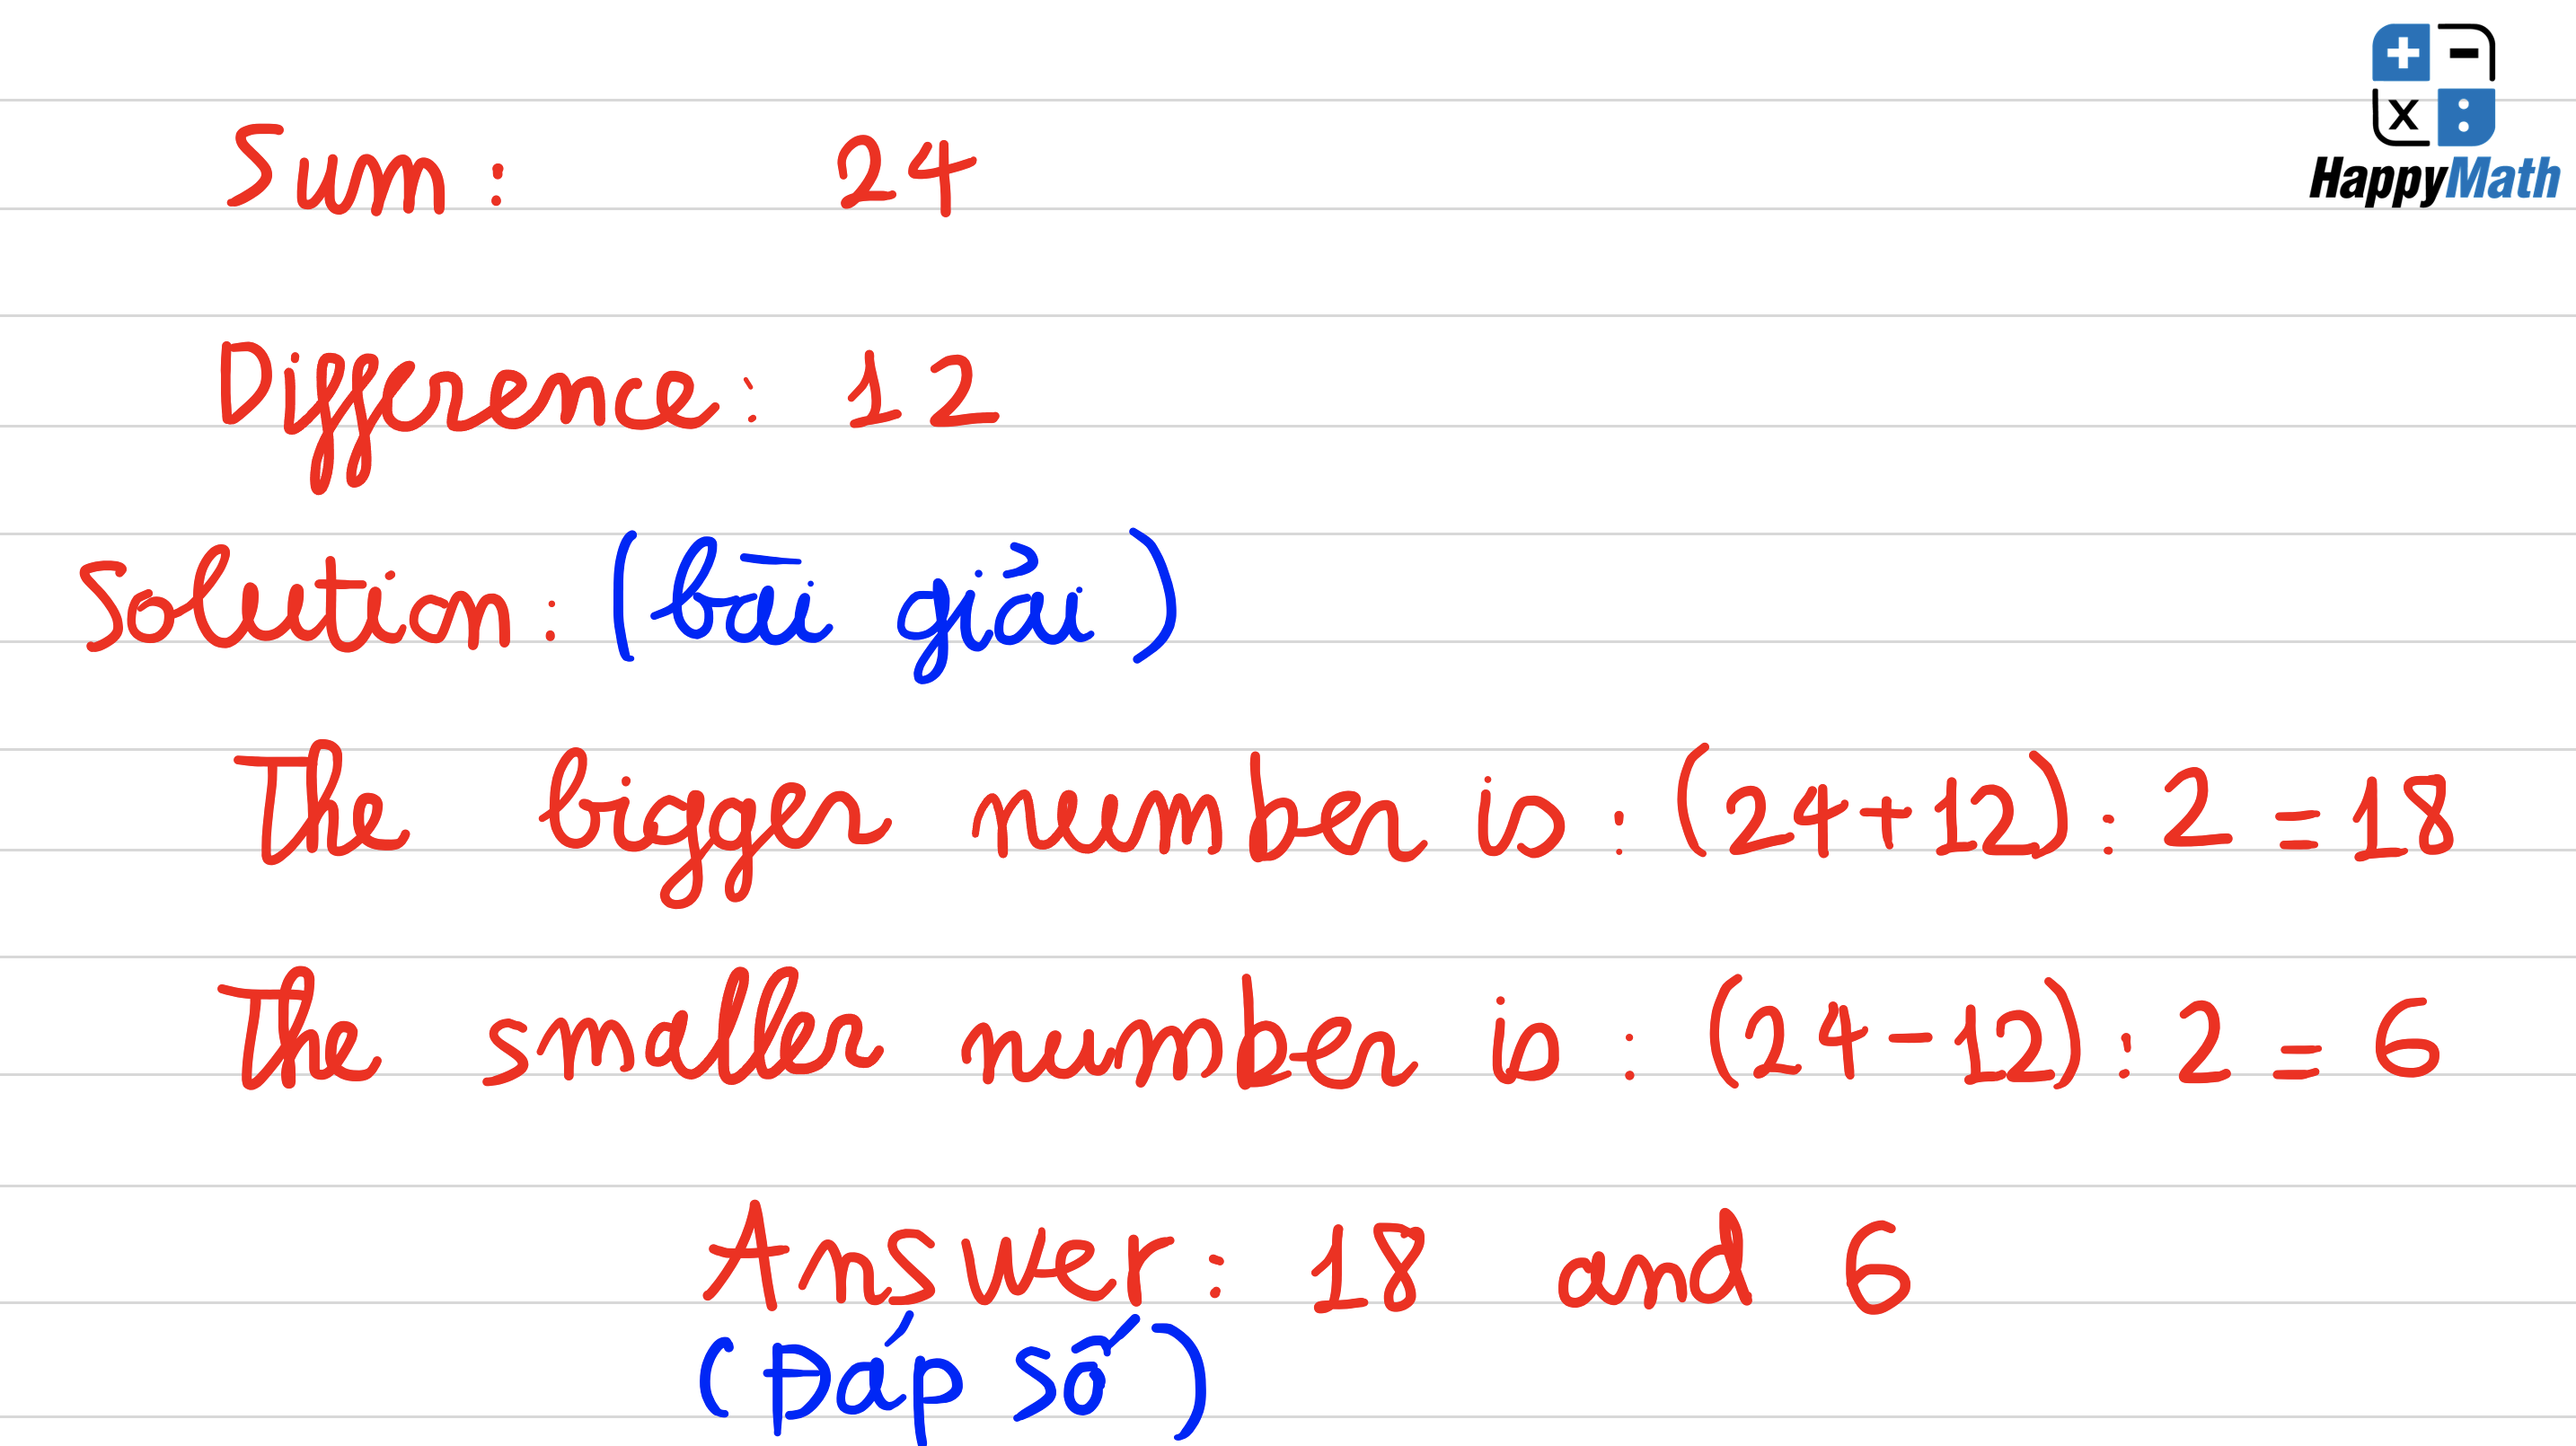 + -
x :
HappyMath
Sum: 24
Difference: 12
Solution: (bài giải)
The bigger number is: (24+12): 2 = 18
The smaller number is: (24-12): 2 = 6
Answer: 18 and 6
(Đáp số)